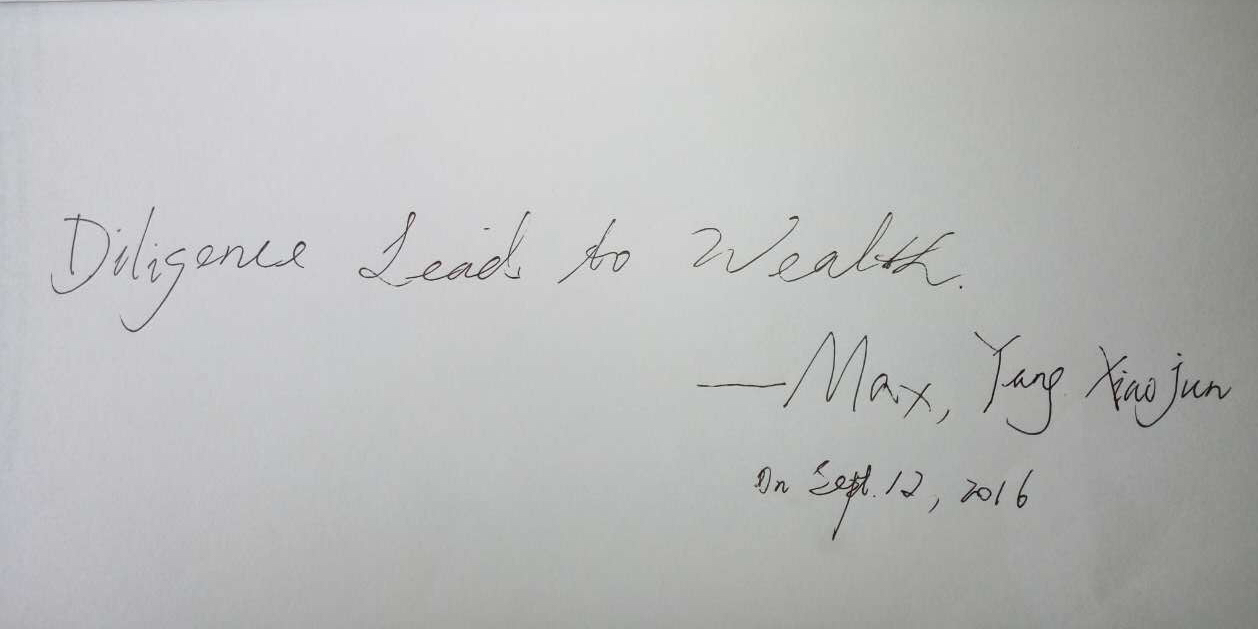 Diligence Lead to Wealth.
—Max, Yang Xiaojun
On Sept. 12, 2016